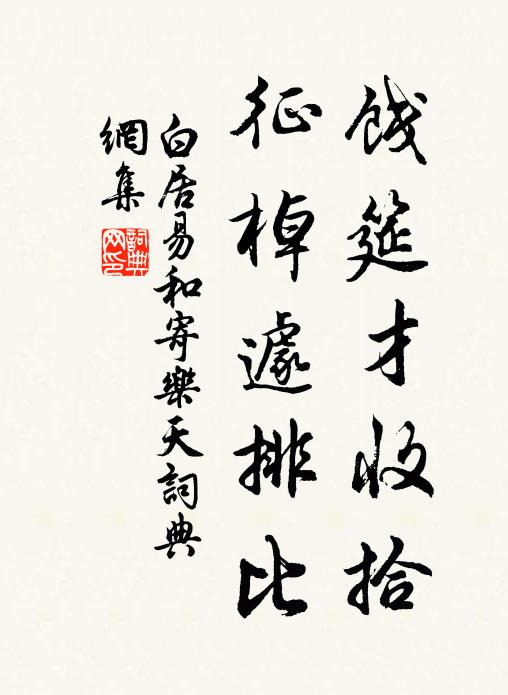 餞筵才收拾
征棹遽排比
白居易和寄樂天詞典
網集
詞典
网印